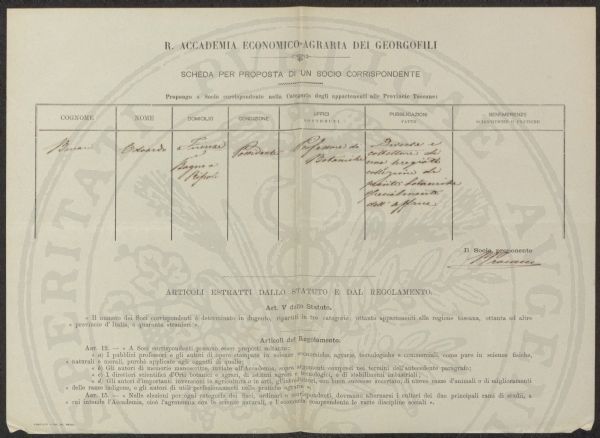 R. ACCADEMIA ECONOMICO-AGRARIA DEI GEORGOFILI
SCHEDA PER PROPOSTA DI UN SOCIO CORRISPONDENTE
Propongo a Socio corrispondente nella Categoria degli appartenenti alle Provincie Toscane:
COGNOME NOME DOMICILIO CONDIZIONE UFFICI PUBBLICAZIONI BENEMERENZE
SOSTENUTI FATTE SCIENTIFICHE O PRATICHE
Odoardo Firenze Possidente Professore di Diverse e
Bagno a Botanica collettore di
Ripoli una
collezione di
piante
specialmente
dell'
Il Socio proponente
ARTICOLI ESTRATTI DALLO STATUTO E DAL REGOLAMENTO.
Art. V dello Statuto.
« Il numero dei Soci corrispondenti è determinato in dugento, ripartiti in tre categorie, ottanta appartenenti alla regione toscana, ottanta ad altre
« provincie d'Italia, e quaranta stranieri ».
Articoli del Regolamento.
ART. 12. — « A Soci corrispondenti possono esser proposti soltanto:
« a) I pubblici professori e gli autori di opere stampate in scienze economiche, agrarie, tecnologiche e commerciali, come pure in scienze fisiche,
« naturali e morali, purchè applicate agli oggetti di quelle;
« b) Gli autori di memorie manoscritte, inviate all'Accademia, sopra argomenti compresi nei termini dell'antecedente paragrafo;
« c) I direttori scientifici d'Orti botanici e agrari, di istituti agrari e tecnologici, e di stabilimenti industriali;
« d) Gli autori d'importanti invenzioni in agricoltura o in arti, gl'introduttori, con buon successo accertato, di nuove razze d'animali o di miglioramenti
« delle razze indigene, e gli autori di utili perfezionamenti nelle pratiche agrarie ».
ART. 15. — « Nelle elezioni per ogni categoria dei Soci, ordinari e corrispondenti, dovranno alternarsi i cultori dei due principali rami di studi, a
« cui intende l'Accademia, cioè l'agronomia con le scienze naturali, e l'economia comprendente le varie discipline sociali ».